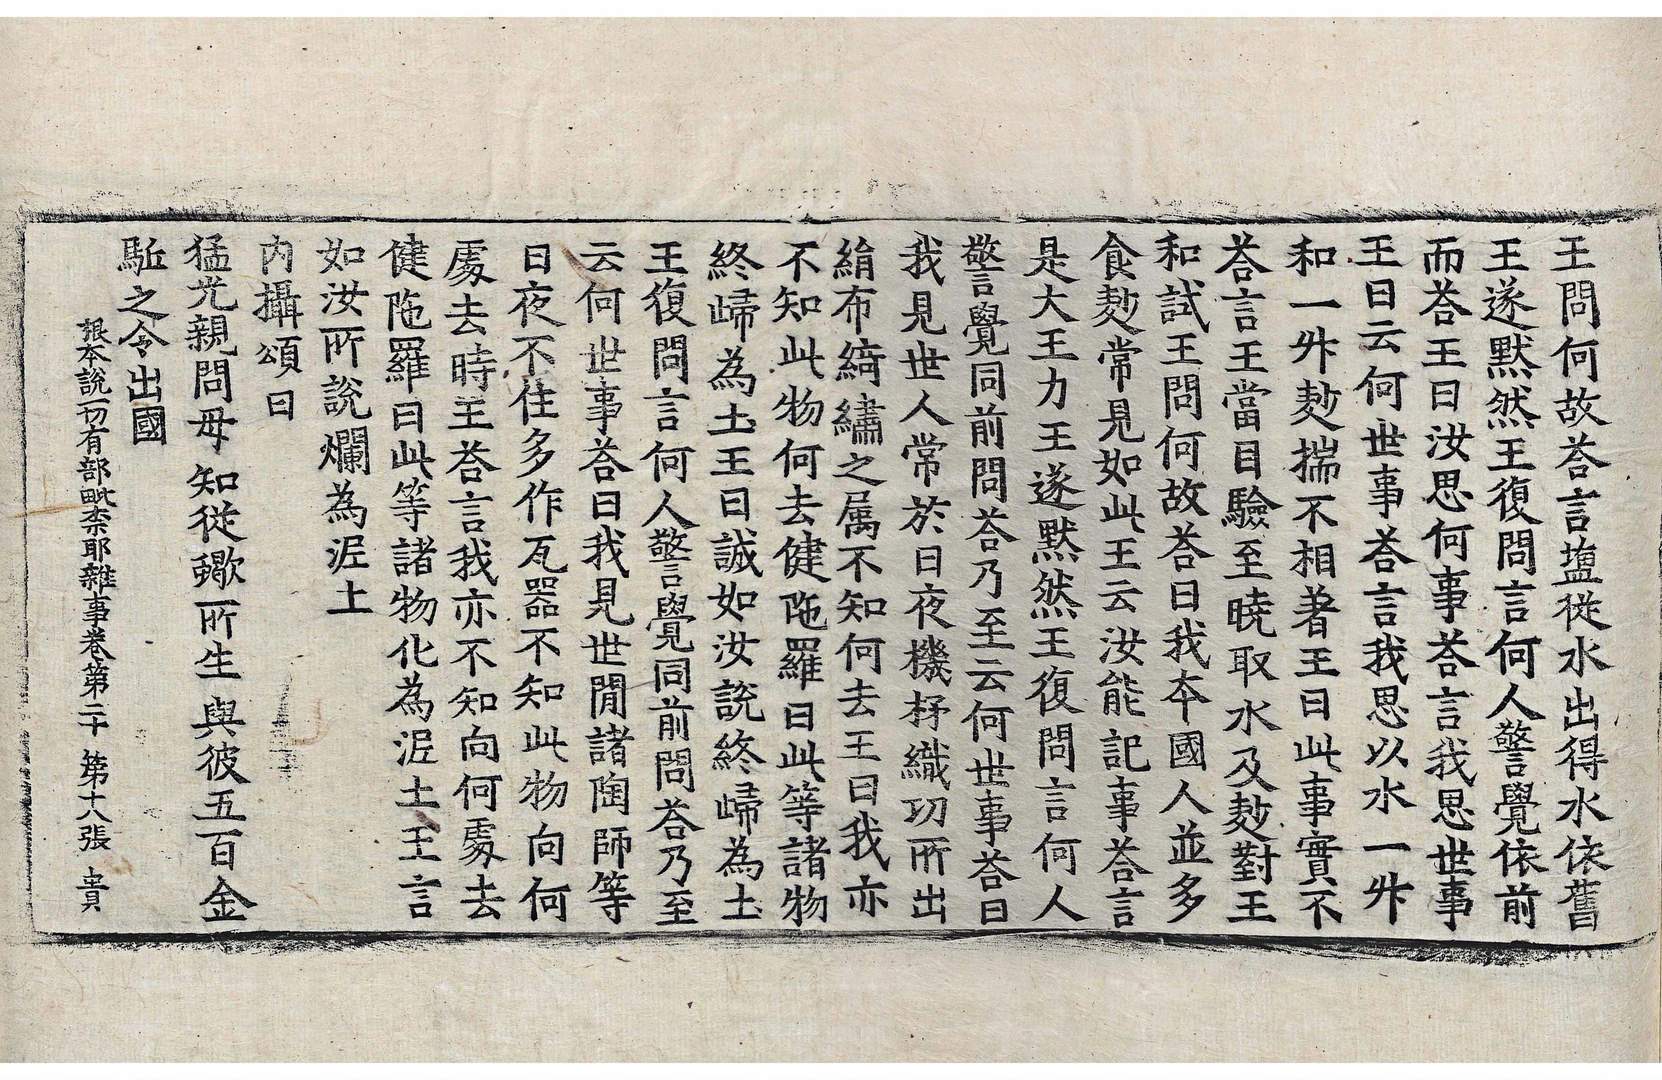 王問何故荅言塩從水出得水依舊
王遂默然王復問言何人警覺依前
而荅王曰汝思何事荅言我思世事
王曰云何世事荅言我思以水一升
和一升麨揣不相著王曰此事實不
荅言王當目驗至曉取水及麨對王
和試王問何故荅曰我本國人並多
食麨常見如此王云汝能記事荅言
是大王力王遂默然王復問言何人
警覺同前問荅乃至云何世事荅曰
我見世人常於日夜機杼織功所出
絹布綺繡之属不知何去王曰我亦
不知此物何去健陁羅曰此等諸物
終歸為土王曰誠如汝說終歸為土
王復問言何人警覺同前問荅乃至
云何世事荅曰我見世間諸陶師等
日夜不住多作瓦器不知此物向何
處去時王荅言我亦不知向何處去
健陁羅曰此等諸物化為泥土王言
如汝所說爛為泥土
內攝頌曰
猛光親問母 知從蠍所生 與彼五百金
駈之令出國
根本說一切有部毗柰耶雜事卷第二十 第十八張 貴